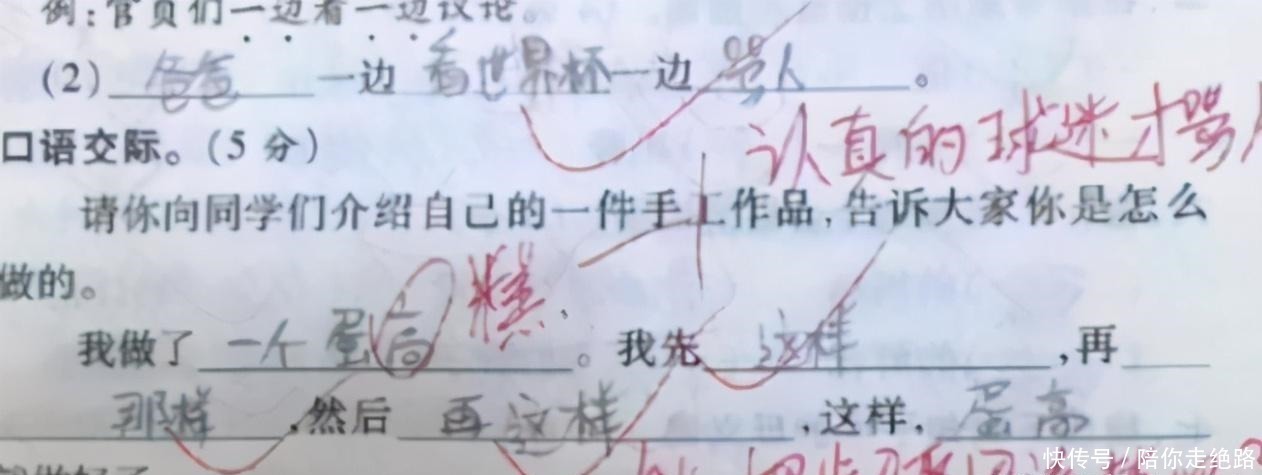 例:官员们一边看一边议论。
(2) 爸爸 一边 看世界杯一边 骂人。
认真的球迷才骂人
口语交际。(5 分)
请你向同学们介绍自己的一件手工作品,告诉大家你是怎么
做的。
我做了 一个蛋高 糕。我先 这样 ,再
那样 ,然后 再这样 ,这样, 蛋高
快传号/陪你走绝路